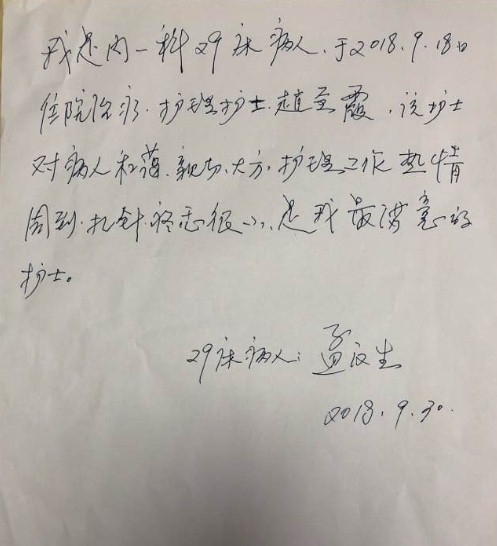 我是内一科29床病人.于2018.9.18日
住院治疗.护理护士赵玉霞.该护士
对病人和蔼.亲切.大方.护理工作热情
周到.扎针疼痛很小.是我最满意的
护士。
29床病人:孟文生
2018.9.30.